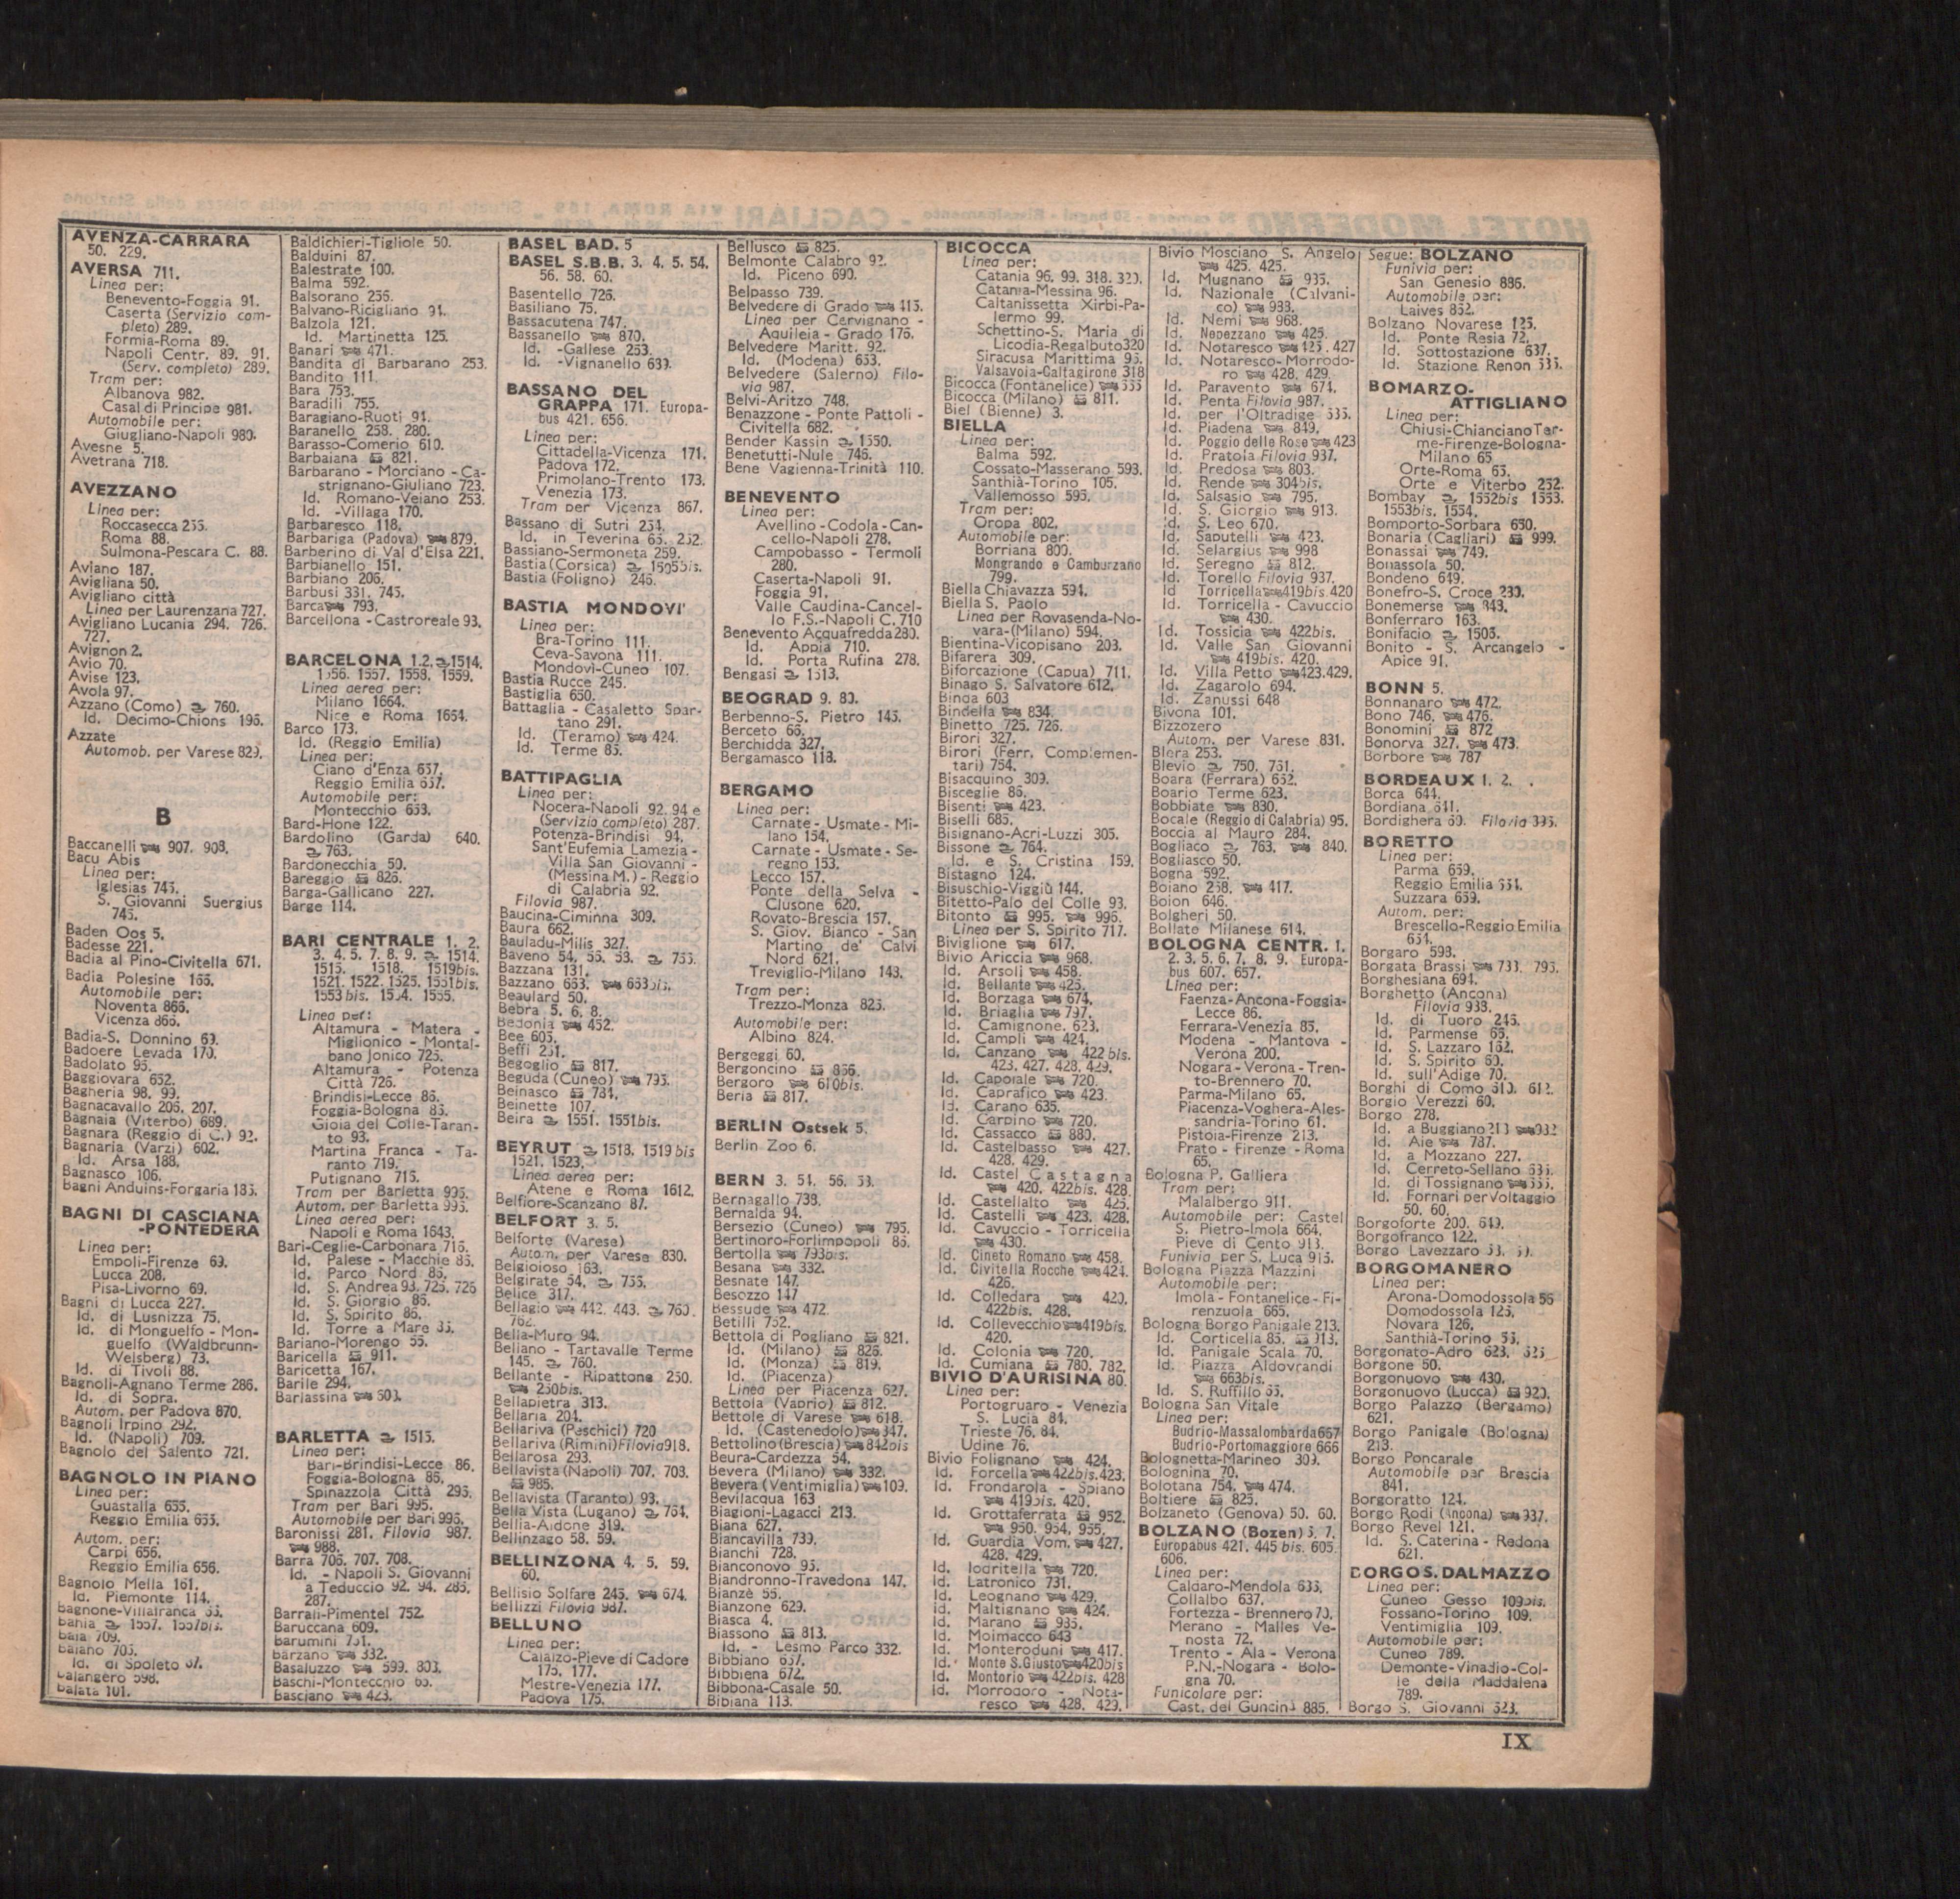 AVENZA-CARRARA
50. 229.
AVERSA 711.
Linea per:
Benevento-Foggia 91.
Caserta (Servizio com-
pleto) 289.
Formia-Roma 89.
Napoli Centr. 89. 91.
(Serv. completo) 289.
Tram per:
Albanova 982.
Casal di Principe 981.
Automobile per:
Giugliano-Napoli 980.
Avesne 5.
Avetrana 718.
AVEZZANO
Linea per:
Roccasecca 255.
Roma 88.
Sulmona-Pescara C. 88.
Aviano 187.
Avigliana 50.
Avigliano città
Linea per Laurenzana 727.
Avigliano Lucania 294. 726.
727.
Avignon 2.
Avio 70.
Avise 123.
Avola 97.
Azzano (Como) 760.
Id. Decimo-Chions 196.
Azzate
Automob. per Varese 829.
B
Baccanelli 907. 908.
Bacu Abis
Linea per:
Iglesias 745.
S. Giovanni Suergius
745.
Baden Oos 5.
Badesse 221.
Badia al Pino-Civitella 671.
Badia Polesine 166.
Automobile per:
Noventa 866.
Vicenza 866.
Badia-S. Donnino 69.
Badoere Levada 170.
Badolato 95.
Baggiovara 652.
Bagheria 98. 99.
Bagnacavallo 206. 207.
Bagnaia (Viterbo) 689.
Bagnara (Reggio di C.) 92.
Bagnaria (Varzi) 602.
Id. Arsa 188.
Bagnasco 106.
Bagni Anduins-Forgaria 185.
BAGNI DI CASCIANA
-PONTEDERA
Linea per:
Empoli-Firenze 69.
Lucca 208.
Pisa-Livorno 69.
Bagni di Lucca 227.
Id. di Lusnizza 75.
Id. di Monguelfo - Mon-
guelfo (Waldbrunn-
Welsberg) 73.
Id. di Tivoli 88.
Bagnoli-Agnano Terme 286.
Id. di Sopra.
Autom. per Padova 870.
Bagnoli Irpino 292.
Id. (Napoli) 709.
Bagnolo del Salento 721.
BAGNOLO IN PIANO
Linea per:
Guastalla 655.
Reggio Emilia 655.
Autom. per:
Carpi 656.
Reggio Emilia 656.
Bagnolo Mella 161.
Id. Piemonte 114.
Bagnone-Villafranca 66.
Bahia 1557. 1557bis.
Baia 709.
Baiano 705.
Id. di Spoleto 87.
Balangero 598.
Balata 101.
Baldichieri-Tigliole 50.
Balduini 87.
Balestrate 100.
Balma 592.
Balsorano 255.
Balvano-Ricigliano 91.
Balzola 121.
Id. Martinetta 125.
Banari 471.
Bandita di Barbarano 253.
Bandito 111.
Bara 753.
Baradili 755.
Baragiano-Ruoti 91.
Baranello 258. 280.
Barasso-Comerio 610.
Barbaiana 821.
Barbarano - Morciano - Ca-
strignano-Giuliano 723.
Id. Romano-Vejano 253.
Id. -Villaga 170.
Barbaresco 118.
Barbariga (Padova) 879.
Barberino di Val d'Elsa 221.
Barbianello 151.
Barbiano 206.
Barbusi 331. 745.
Barca 793.
Barcellona - Castroreale 93.
BARCELONA 1.2. 1514.
1556. 1557. 1558. 1559.
Linea aerea per:
Milano 1664.
Nice e Roma 1664.
Barco 173.
Id. (Reggio Emilia)
Linea per:
Ciano d'Enza 657.
Reggio Emilia 657.
Automobile per:
Montecchio 653.
Bard-Hone 122.
Bardolino (Garda) 640.
763.
Bardonecchia 50.
Bareggio 826.
Barga-Gallicano 227.
Barge 114.
BARI CENTRALE 1. 2.
3. 4. 5. 7. 8. 9. 1514.
1515. 1518. 1519bis.
1521. 1522. 1525. 1551bis.
1553bis. 1554. 1555.
Linea per:
Altamura - Matera -
Miglionico - Montal-
bano Jonico 725.
Altamura - Potenza
Città 726.
Brindisi-Lecce 86.
Foggia-Bologna 86.
Gioia del Colle-Taran-
to 93.
Martina Franca - Ta-
ranto 719.
Putignano 715.
Tram per Barletta 995.
Autom. per Barletta 995.
Linea aerea per:
Napoli e Roma 1643.
Bari-Ceglie-Carbonara 715.
Id. Palese - Macchie 85.
Id. Parco Nord 85.
Id. S. Andrea 93. 725. 726
Id. S. Giorgio 86.
Id. S. Spirito 86.
Id. Torre a Mare 86.
Bariano-Morengo 55.
Baricella 911.
Baricetta 167.
Barile 294.
Barlassina 603.
BARLETTA 1515.
Linea per:
Bari-Brindisi-Lecce 86.
Foggia-Bologna 86.
Spinazzola Città 295.
Tram per Bari 995.
Automobile per Bari 995.
Baronissi 281. Filovia 987.
988.
Barra 706. 707. 708.
Id. - Napoli S. Giovanni
a Teduccio 92. 94. 285.
287.
Barrali-Pimentel 752.
Baruccana 609.
Barumini 751.
Barzano 332.
Basaluzzo 599. 803.
Baschi-Montecchio 65.
Basciano 423.
BASEL BAD. 5
BASEL S.B.B. 3. 4. 5. 54.
56. 58. 60.
Basentello 726.
Basiliano 75.
Bassacutena 747.
Bassanello 870.
Id. -Gallese 253.
Id. -Vignanello 689.
BASSANO DEL
GRAPPA 171. Europa-
bus 421. 656.
Linea per:
Cittadella-Vicenza 171.
Padova 172.
Primolano-Trento 173.
Venezia 173.
Tram per Vicenza 867.
Bassano di Sutri 254.
Id. in Teverina 65. 252.
Bassiano-Sermoneta 259.
Bastia (Corsica) 1505bis.
Bastia (Foligno) 245.
BASTIA MONDOVI'
Linea per:
Bra-Torino 111.
Ceva-Savona 111.
Mondovì-Cuneo 107.
Bastia Rucce 245.
Bastiglia 650.
Battaglia - Casaletto Spar-
tano 291.
Id. (Teramo) 424.
Id. Terme 85.
BATTIPAGLIA
Linea per:
Nocera-Napoli 92. 94 e
(Servizio completo) 287.
Potenza-Brindisi 94.
Sant'Eufemia Lamezia -
Villa San Giovanni -
(Messina M.) - Reggio
di Calabria 92.
Filovia 987.
Baucina-Ciminna 309.
Baura 662.
Bauladu-Milis 327.
Baveno 54. 56. 58. 755.
Bazzana 131.
Bazzano 663. 663bis.
Beaulard 50.
Bebra 5. 6. 8.
Bedonia 452.
Bee 605.
Beffi 251.
Begoglio 817.
Beguda (Cuneo) 795.
Beinasco 784.
Beinette 107.
Beira 1551. 1551bis.
BEYRUT 1518. 1519bis
1521. 1523.
Linea aerea per:
Atene e Roma 1612.
Belfiore-Scanzano 87.
BELFORT 3. 5.
Belforte (Varese)
Autom. per Varese 830.
Belgioioso 163.
Belgirate 54. 755.
Belice 317.
Bellagio 442. 443. 760.
762.
Bella-Muro 94.
Bellano - Tartavalle Terme
145. 760.
Bellante - Ripattone 250.
250bis.
Bellapietra 313.
Bellaria 204.
Bellariva (Peschici) 720
Bellariva (Rimini) Filovia 918.
Bellarosa 293.
Bellavista (Napoli) 707. 708.
985.
Bellavista (Taranto) 93.
Bella Vista (Lugano) 764.
Bellia-Aidone 319.
Bellinzago 58. 59.
BELLINZONA 4. 5. 59.
60.
Bellisio Solfare 245. 674.
Bellizzi Filovia 987.
BELLUNO
Linea per:
Calalzo-Pieve di Cadore
175. 177.
Mestre-Venezia 177.
Padova 175.
Bellusco 825.
Belmonte Calabro 92.
Id. Piceno 690.
Belpasso 739.
Belvedere di Grado 415.
Linea per Cervignano -
Aquileia - Grado 176.
Belvedere Maritt. 92.
Id. (Modena) 653.
Belvedere (Salerno) Filo-
via 987.
Belvi-Aritzo 748.
Benazzone - Ponte Pattoli -
Civitella 682.
Bender Kassin 1550.
Benetutti-Nule 746.
Bene Vagienna-Trinità 110.
BENEVENTO
Linea per:
Avellino - Codola - Can-
cello-Napoli 278.
Campobasso - Termoli
280.
Caserta-Napoli 91.
Foggia 91.
Valle Caudina-Cancel-
lo F.S.-Napoli C. 710
Benevento Acquafredda 280.
Id. Appia 710.
Id. Porta Rufina 278.
Bengasi 1513.
BEOGRAD 9. 80.
Berbenno-S. Pietro 145.
Berceto 66.
Berchidda 327.
Bergamasco 118.
BERGAMO
Linea per:
Carnate - Usmate - Mi-
lano 154.
Carnate - Usmate - Se-
regno 153.
Lecco 157.
Ponte della Selva -
Clusone 620.
Rovato-Brescia 157.
S. Giov. Bianco - San
Martino de' Calvi
Nord 621.
Treviglio-Milano 143.
Tram per:
Trezzo-Monza 825.
Automobile per:
Albino 824.
Bergeggi 60.
Bergoncino 866.
Bergoro 610bis.
Beria 817.
BERLIN Ostsek 5.
Berlin Zoo 6.
BERN 3. 54. 56. 58.
Bernagallo 738.
Bernalda 94.
Bersezio (Cuneo) 795.
Bertinoro-Forlimpopoli 86.
Bertolla 793bis.
Besana 332.
Besnate 147.
Besozzo 147
Bessude 472.
Betilli 752.
Bettola di Pogliano 821.
Id. (Milano) 826.
Id. (Monza) 819.
Id. (Piacenza)
Linea per Piacenza 627.
Bettola (Vaprio) 812.
Bettole di Varese 618.
Id. (Castenedolo) 847.
Bettolino (Brescia) 842bis
Beura-Cardezza 54.
Bevera (Milano) 332.
Bevera (Ventimiglia) 109.
Bevilacqua 163
Biagioni-Lagacci 213.
Biana 627.
Biancavilla 739.
Bianchi 728.
Bianconovo 95.
Biandronno-Travedona 147.
Bianzè 55.
Bianzone 629.
Biasca 4.
Biassono 813.
Id. - Lesmo Parco 332.
Bibbiano 657.
Bibbiena 672.
Bibbona-Casale 50.
Bibiana 113.
BICOCCA
Linea per:
Catania 96. 99. 318. 320.
Catania-Messina 96.
Caltanissetta Xirbi-Pa-
lermo 99.
Schettino-S. Maria di
Licodia-Regalbuto 320
Siracusa Marittima 96.
Valsavoia-Caltagirone 318
Bicocca (Fontanelice) 555
Bicocca (Milano) 811.
Biel (Bienne) 3.
BIELLA
Linea per:
Balma 592.
Cossato-Masserano 593.
Santhià-Torino 105.
Vallemosso 595.
Tram per:
Oropa 802.
Automobile per:
Borriana 800.
Mongrando e Camburzano
799.
Biella Chiavazza 594.
Biella S. Paolo
Linea per Rovasenda-No-
vara-(Milano) 594.
Bientina-Vicopisano 203.
Bifarera 309.
Biforcazione (Capua) 711.
Binago S. Salvatore 612.
Binda 603
Bindella 834.
Binetto 725. 726.
Birori 327.
Birori (Ferr. Complemen-
tari) 754.
Bisacquino 309.
Bisceglie 86.
Bisenti 423.
Biselli 685.
Bisignano-Acri-Luzzi 305.
Bissone 764.
Id. e S. Cristina 159.
Bistagno 124.
Bisuschio-Viggiù 144.
Bitetto-Palo del Colle 93.
Bitonto 995. 996.
Linea per S. Spirito 717.
Biviglione 617.
Bivio Ariccia 968.
Id. Arsoli 458.
Id. Bellante 425.
Id. Borzaga 674.
Id. Briaglia 797.
Id. Camignone. 623.
Id. Campli 424.
Id. Canzano 422bis.
423. 427. 428. 429.
Id. Caporale 720.
Id. Caprafico 423.
Id. Carano 635.
Id. Carpino 720.
Id. Cassacco 880.
Id. Castelbasso 427.
428. 429.
Id. Castel Castagna
420. 422bis. 428.
Id. Castellalto 425.
Id. Castelli 423. 428.
Id. Cavuccio - Torricella
430.
Id. Cineto Romano 458.
Id. Civitella Rocche 424.
426.
Id. Colledara 420.
422bis. 428.
Id. Collevecchio 419bis.
420.
Id. Colonia 720.
Id. Cumiana 780. 782.
BIVIO D'AURISINA 80.
Linea per:
Portogruaro - Venezia
S. Lucia 84.
Trieste 76. 84.
Udine 76.
Bivio Folignano 424.
Id. Forcella 422bis. 423.
Id. Frondarola - Spiano
419bis. 420.
Id. Grottaferrata 952.
950. 954. 955.
Id. Guardia Vom. 427.
428. 429.
Id. Ioaritella 720.
Id. Latronico 731.
Id. Leognano 429.
Id. Maltignano 424.
Id. Marano 935.
Id. Moimacco 643
Id. Monteroduni 417.
Id. Monte S.Giusto 420bis
Id. Montorio 422bis. 428
Id. Morrodoro - Nota-
resco 428. 429.
Bivio Mosciano S. Angelo
425. 425.
Id. Mugnano 935.
Id. Nazionale (Calvani-
co) 988.
Id. Nemi 968.
Id. Nepezzano 425.
Id. Notaresco 425. 427
Id. Notaresco-Morrodo-
ro 428. 429.
Id. Paravento 674.
Id. Penta Filovia 987.
Id. per l'Oltradige 635.
Id. Piadena 849.
Id. Poggio delle Rose 423
Id. Pratola Filovia 937.
Id. Predosa 803.
Id. Rende 304bis.
Id. Salsasio 795.
Id. S. Giorgio 913.
Id. S. Leo 670.
Id. Saputelli 423.
Id. Selargius 998
Id. Seregno 812.
Id. Torello Filovia 937.
Id Torricella 419bis. 420
Id. Torricella - Cavuccio
430.
Id. Tossicia 422bis.
Id. Valle San Giovanni
419bis. 420.
Id. Villa Petto 423. 429.
Id. Zagarolo 694.
Id. Zanussi 648
Bivona 101.
Bizzozero
Autom. per Varese 831.
Blera 253.
Blevio 750. 761.
Boara (Ferrara) 652.
Boario Terme 623.
Bobbiate 830.
Bocale (Reggio di Calabria) 95.
Boccia al Mauro 284.
Bogliaco 763. 840.
Bogliasco 50.
Bogna 592.
Boiano 258. 417.
Boion 646.
Bolgheri 50.
Bollate Milanese 614.
BOLOGNA CENTR. 1.
2. 3. 5. 6. 7. 8. 9. Europa-
bus 607. 657.
Linea per:
Faenza-Ancona-Foggia-
Lecce 86.
Ferrara-Venezia 85.
Modena - Mantova -
Verona 200.
Nogara - Verona - Tren-
to-Brennero 70.
Parma-Milano 65.
Piacenza-Voghera-Ales-
sandria-Torino 61.
Pistoia-Firenze 213.
Prato - Firenze - Roma
65.
Bologna P. Galliera
Tram per:
Malalbergo 911.
Automobile per: Castel
S. Pietro-Imola 664.
Pieve di Cento 913.
Funivia per S. Luca 915.
Bologna Piazza Mazzini
Automobile per:
Imola - Fontanelice - Fi-
renzuola 665.
Bologna Borgo Panigale 213.
Id. Corticella 85. 913.
Id. Panigale Scala 70.
Id. Piazza Aldovrandi
663bis.
Id. S. Ruffillo 65.
Bologna San Vitale
Linea per:
Budrio-Massalombarda 667
Budrio-Portomaggiore 666
Bolognetta-Marineo 309.
Bolognina 70.
Bolotana 754. 474.
Boltiere 825.
Bolzaneto (Genova) 50. 60.
BOLZANO (Bozen) 5. 7.
Europabus 421. 445 bis. 605.
606.
Linea per:
Caldaro-Mendola 635.
Collalbo 637.
Fortezza - Brennero 70.
Merano - Malles Ve-
nosta 72.
Trento - Ala - Verona
P.N.-Nogara - Bolo-
gna 70.
Funicolare per:
Cast. del Guncinà 885.
Segue: BOLZANO
Funivia per:
San Genesio 886.
Automobile per:
Laives 852.
Bolzano Novarese 125.
Id. Ponte Resia 72.
Id. Sottostazione 637.
Id. Stazione Renon 635.
BOMARZO-
ATTIGLIANO
Linea per:
Chiusi-Chianciano Ter-
me-Firenze-Bologna-
Milano 65
Orte-Roma 65.
Orte e Viterbo 252.
Bombay 1552bis 1553.
1553bis. 1554.
Bomporto-Sorbara 650.
Bonaria (Cagliari) 999.
Bonassai 749.
Bonassola 50.
Bondeno 649.
Bonefro-S. Croce 280.
Bonemerse 843.
Bonferraro 163.
Bonifacio 1505.
Bonito - S. Arcangelo -
Apice 91.
BONN 5.
Bonnanaro 472.
Bono 746. 476.
Bonomini 872
Bonorva 327. 473.
Borbore 787
BORDEAUX 1. 2.
Borca 644.
Bordiana 641.
Bordighera 60. Filovia 395.
BORETTO
Linea per:
Parma 659.
Reggio Emilia 654.
Suzzara 659.
Autom. per:
Brescello-Reggio Emilia
654.
Borgaro 598.
Borgata Brassi 733. 795.
Borghesiana 694.
Borghetto (Ancona)
Filovia 933.
Id. di Tuoro 245.
Id. Parmense 66.
Id. S. Lazzaro 162.
Id. S. Spirito 60.
Id. sull'Adige 70.
Borghi di Como 610. 612.
Borgio Verezzi 60.
Borgo 278.
Id. a Buggiano 213 932
Id. Aie 787.
Id. a Mozzano 227.
Id. Cerreto-Sellano 685.
Id. di Tossignano 555.
Id. Fornari per Voltaggio
50. 60.
Borgoforte 200. 649.
Borgofranco 122.
Borgo Lavezzaro 53.
BORGOMANERO
Linea per:
Arona-Domodossola 56
Domodossola 125.
Novara 126.
Santhià-Torino 53.
Borgonato-Adro 623. 625.
Borgone 50.
Borgonuovo 430.
Borgonuovo (Lucca) 920.
Borgo Palazzo (Bergamo)
621.
Borgo Panigale (Bologna)
213.
Borgo Poncarale
Automobile per Brescia
841.
Borgoratto 124.
Borgo Rodi (Ancona) 937.
Borgo Revel 121.
Id. S. Caterina - Redona
621.
BORGO S. DALMAZZO
Linea per:
Cuneo Gesso 109bis.
Fossano-Torino 109.
Ventimiglia 109.
Automobile per:
Cuneo 789.
Demonte-Vinadio-Col-
le della Maddalena
789.
Borgo S. Giovanni 623.
IX